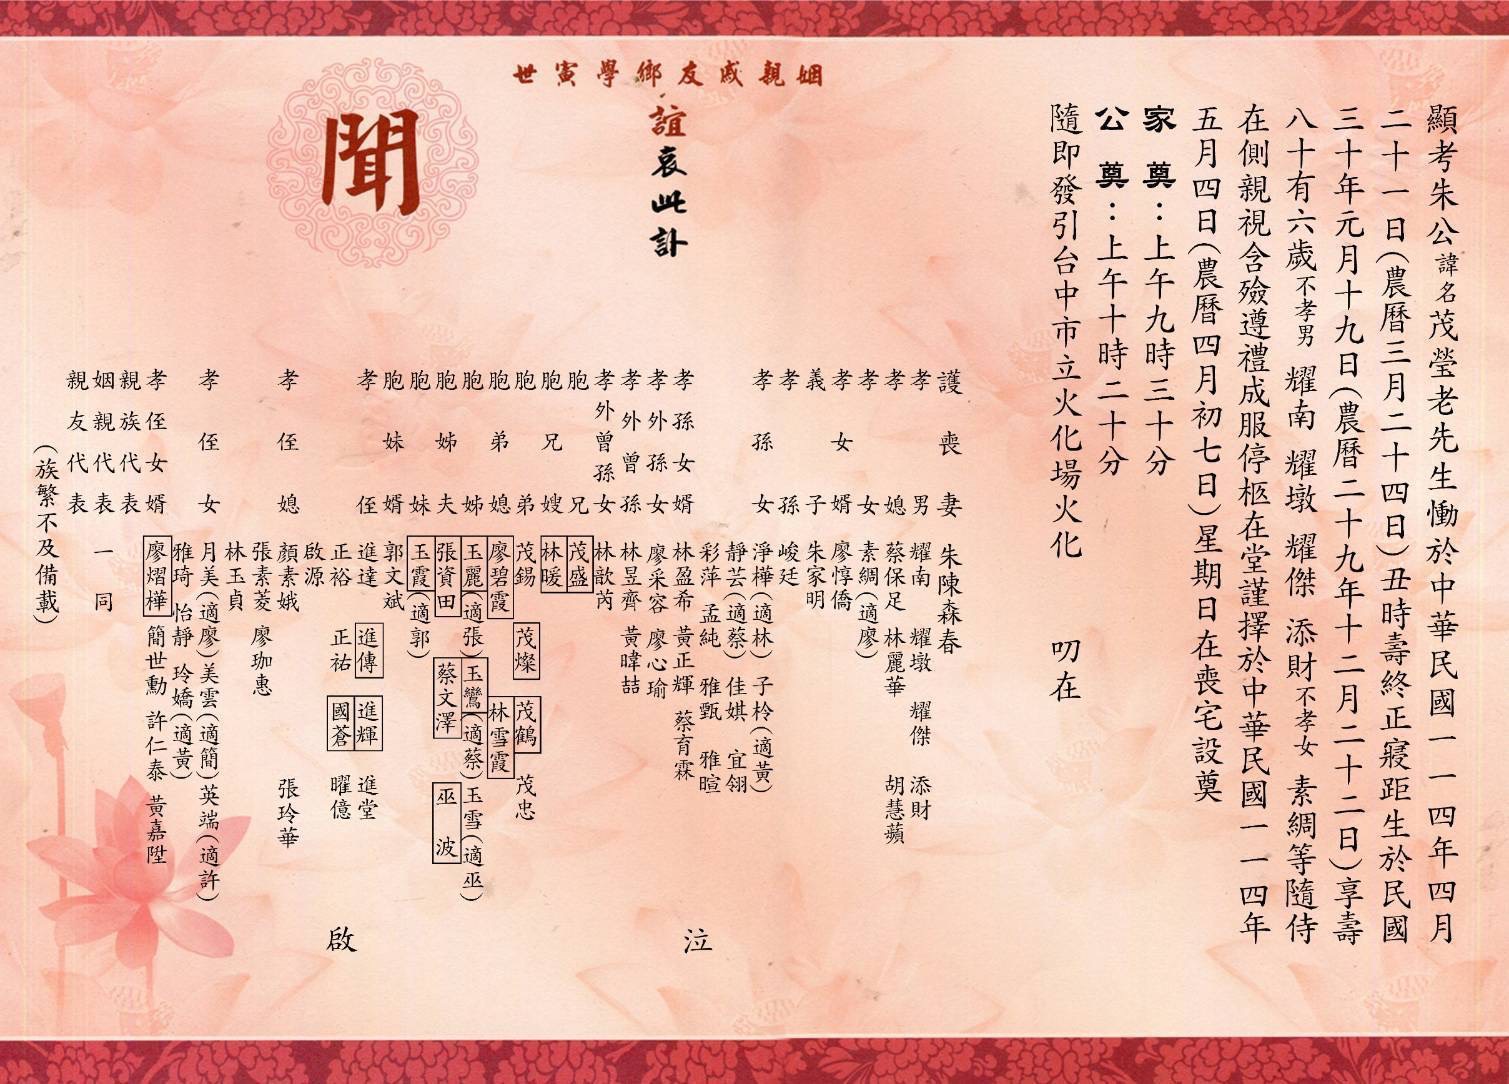 顯考朱公諱名茂瑩老先生慟於中華民國一一四年四月
二十一日(農曆三月二十四日)丑時壽終正寢距生於民國
三十年元月十九日(農曆二十九年十二月二十二日)享壽
八十有六歲不孝男 耀南 耀墩 耀傑 添財不孝女 素綢等隨侍
在側親視含殮遵禮成服停柩在堂謹擇於中華民國一一四年
五月四日(農曆四月初七日)星期日在喪宅設奠
家奠：上午九時三十分
公奠：上午十時二十分
隨即發引台中市立火化場火化 叨在
姻親戚友鄉學寅世
誼哀此訃
聞
護喪妻 朱陳森春
孝男 耀南 耀墩 耀傑 添財
孝媳 蔡保足 林麗華 胡慧蘋
孝女 素綢(適廖)
孝女婿 廖惇僑
義子 朱家明
孝孫 峻廷
孝孫女 淨樺(適林) 子柃(適黃)
靜芸(適蔡) 佳娸 宜翎
彩萍 孟純 雅甄 雅暄
孝孫女婿 林盈希 黃正輝 蔡育霖
孝外孫女 廖采容 廖心瑜
孝外曾孫 林昱齊 黃暐喆
孝外曾孫女 林歆芮
胞兄 茂盛
胞兄嫂 林暖
胞弟 茂錫 茂燦 茂鶴 茂忠
胞弟媳 廖碧霞 林雪霞
胞姊 玉麗(適張) 玉鸞(適蔡) 玉雪(適巫)
胞姊夫 張資田 蔡文澤 巫波
胞妹 玉霞(適郭)
胞妹婿 郭文斌
孝侄 進達 進傳 進輝 進堂
正裕 正祐 國蒼 曜億
啟源
孝侄媳 顏素娥 張玲華
張素菱 廖珈惠
林玉貞
孝侄女 月美(適廖) 美雲(適簡) 英端(適許)
雅琦 怡靜 玲嬌(適黃)
孝侄女婿 廖熠樺 簡世勳 許仁泰 黃嘉陞
親族代表
姻親代表 一同
親友代表
(族繁不及備載)
泣
啟